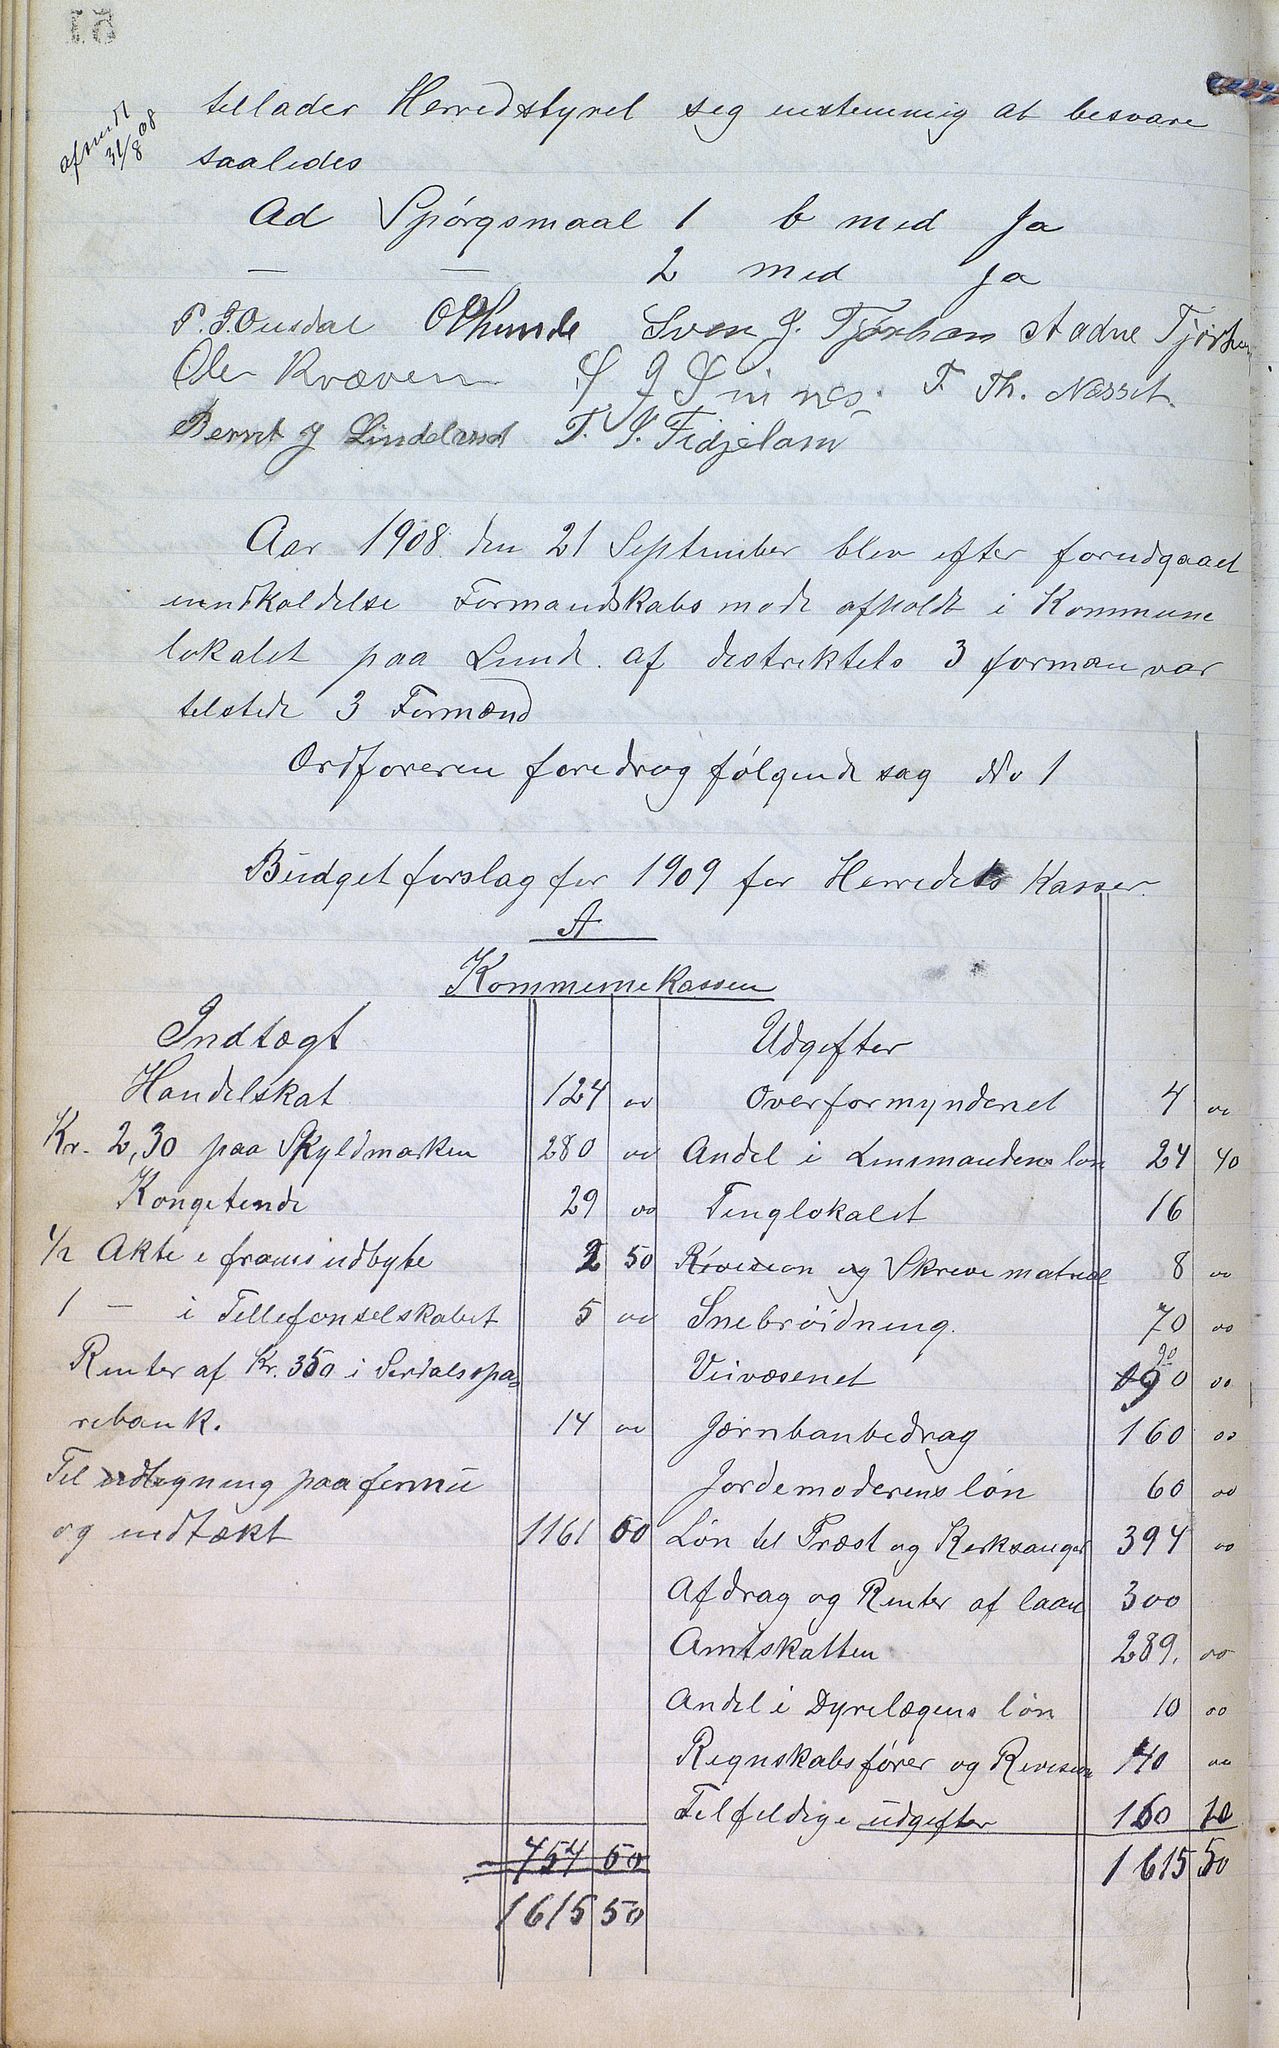 51
afsendt
31/8 08
tellader Herredstyret seg enstemmig at besvare
saaledes
Ad Spørgsmaal 1 b med Ja
— — 2 med Ja
P. J. Ousdal O Hunde Sven J. Tjørhom Aadne Tjørhom
Ole Kvæven S J Sinnes. T. Th. Nesset.
Bernt J Lindeland T. S. Fidjelan
Aar 1908. den 21 September blev efter forudgaaet
inndkaldelse Formandskabsmøde afholdt i Kommune
lokalet paa Lund. af destriktets 3 formæn var
telstede 3 Formænd
Ordføreren foredrog følgende sag No 1
Budgetforslag for 1909 for Herredets Kasser.
A
Kommunekassen
Indtægt Udgifter
Handelskat 124 00 Overformynderiet 4 00
Kr. 2,30 paa Skyldmarken 280 00 Andel i Lensmandens løn 24 40
Kongetende 29 00 Tinglokalet 16
1/2 Akte i frams udbyte 2 50 Revision og Skrive matrial 8 00
1 — i Tellefonselskabet 5 00 Snebrøidning. 70 00
Renter af Kr. 350 i Serdalsspa= Veivæsenet 90 00
rebank. 14 00 Jærnbanbedrag 160 00
Tel udlegning paa formu Jordemoderens løn 60 00
og indtækt 1161 00 Løn tel Præst og Kerksanger 394 00
Afdrag og Renter af laan 300
Amtskatten 289. 00
Andel i Dyrelægens løn 10 00
Regnskabsfører og Revision 40 00
Telfeldige udgifter 150 10
454 50 1615 50
1615 50